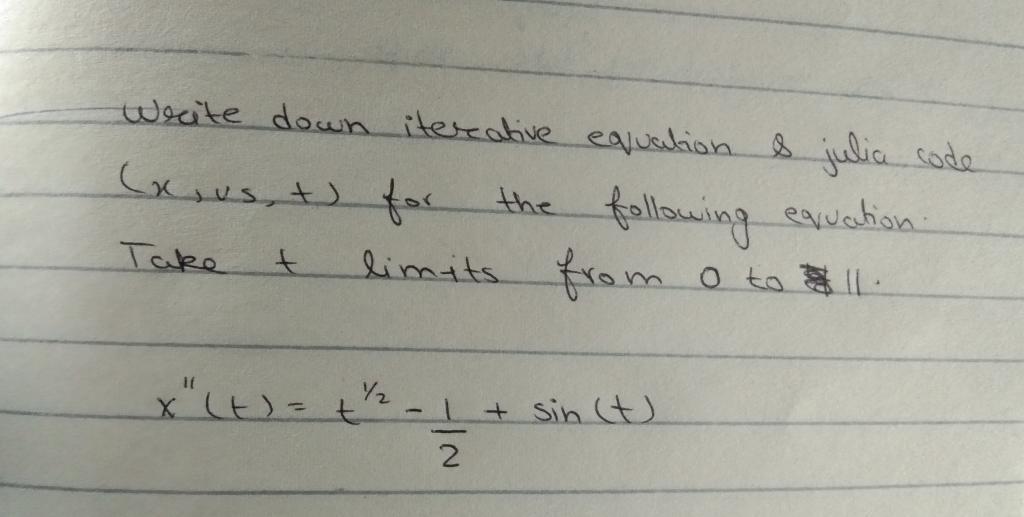 Write down iterative equation & julia code
(x, vs, t) for the following equation.
Take t limits from 0 to 11.
x''(t) = t^1/2 - 1/2 + sin(t)